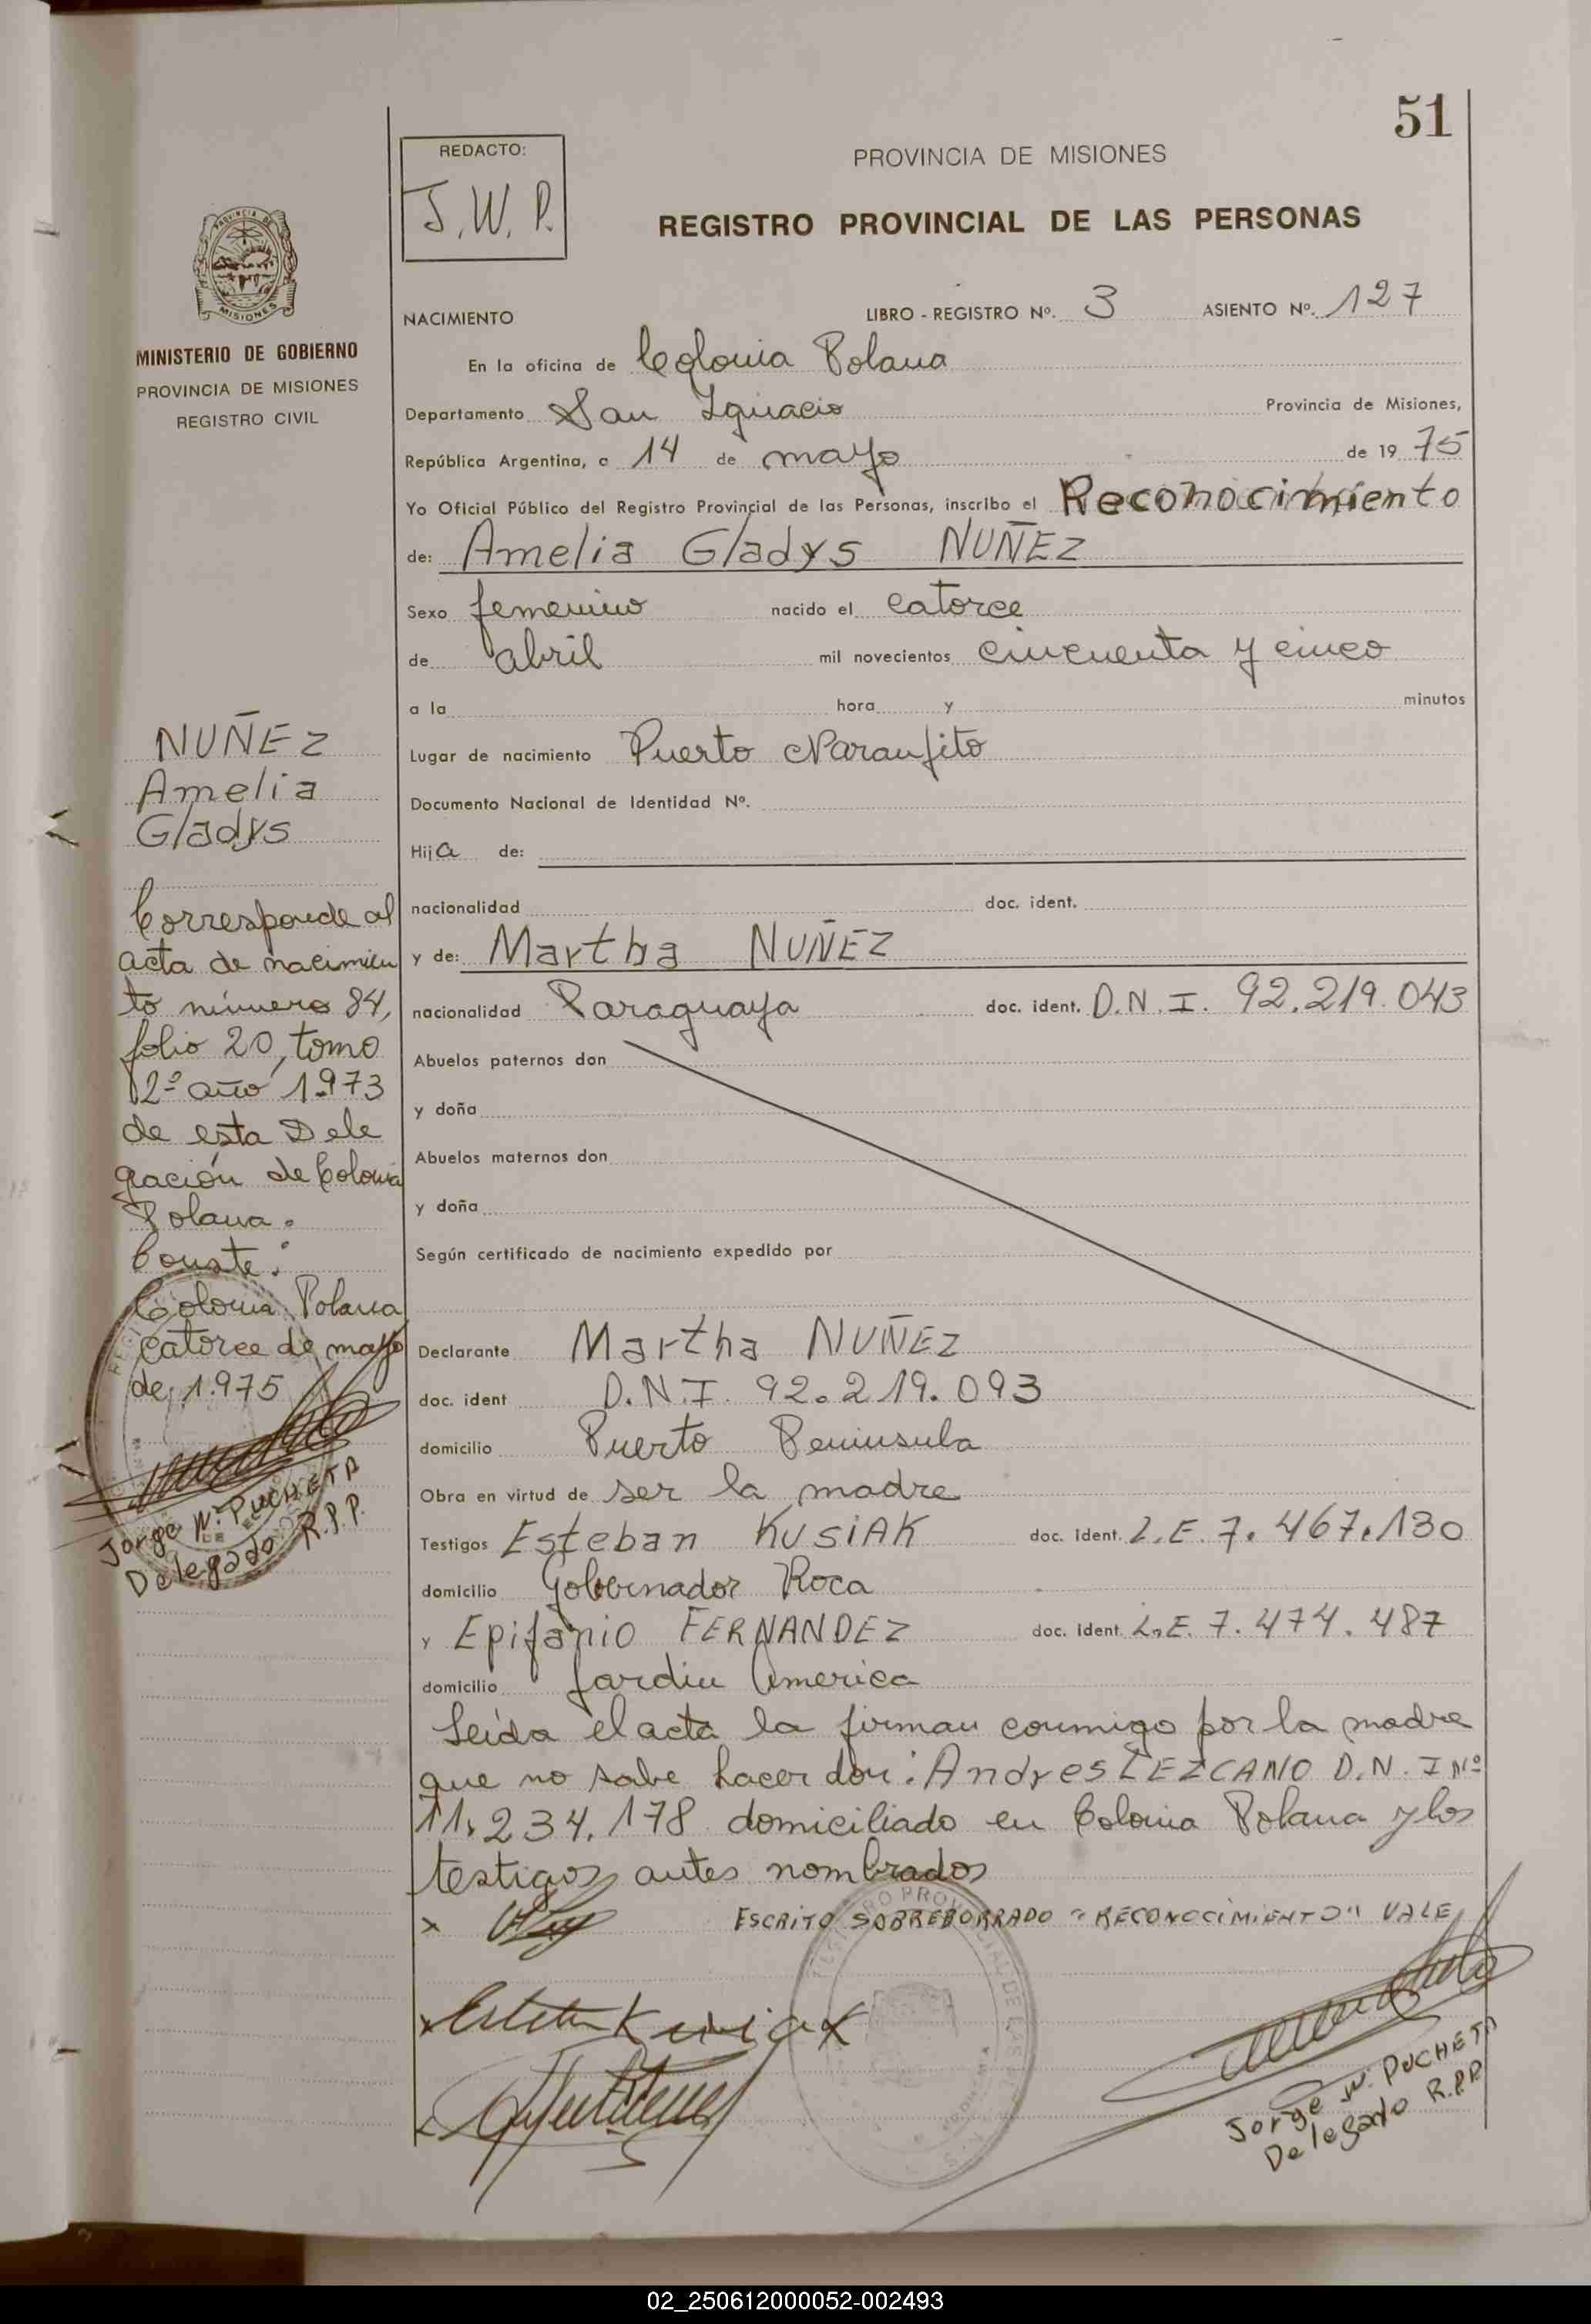 51
REDACTO:
J.W.P.
PROVINCIA DE MISIONES
REGISTRO PROVINCIAL DE LAS PERSONAS
PROVINCIA DE
MISIONES
MINISTERIO DE GOBIERNO
PROVINCIA DE MISIONES
REGISTRO CIVIL
NACIMIENTO
LIBRO - REGISTRO Nº. 3 ASIENTO Nº. 127
En la oficina de Colonia Polana
Departamento San Ignacio Provincia de Misiones,
República Argentina, a 14 de mayo de 19 75
Yo Oficial Público del Registro Provincial de las Personas, inscribo el Reconocimiento
de: Amelia Gladys NUÑEZ
Sexo femenino nacido el catorce
de abril mil novecientos cincuenta y cinco
a la hora y minutos
Lugar de nacimiento Puerto Naranjito
Documento Nacional de Identidad Nº.
Hija de:
nacionalidad doc. ident.
y de: Martha NUÑEZ
nacionalidad Paraguaya doc. ident. D.N.I. 92.219.043
Abuelos paternos don
y doña
Abuelos maternos don
y doña
Según certificado de nacimiento expedido por
Declarante Martha NUÑEZ
doc. ident D.N.I. 92.219.093
domicilio Puerto Peninsula
Obra en virtud de ser la madre
Testigos Esteban KUSIAK doc. ident. L.E. 7.467.130
domicilio Gobernador Roca
y Epifanio FERNANDEZ doc. ident. L.E. 7.474.487
domicilio Jardin America
Leida el acta la firman conmigo por la madre
que no sabe hacer don: Andres LEZCANO D.N.I Nº
11.234.178 domiciliado en Colonia Polana y los
testigos antes nombrados
ESCRITO SOBREBORRADO "RECONOCIMIENTO" VALE
Esteban Kusiak
Jorge W. PUCHETA
Delegado R.P.P.
NUÑEZ
Amelia
Gladys
Corresponde al
acta de nacimien
to número 84,
folio 20, tomo
2º año 1.973
de esta Dele
gación de Colonia
Polana.
Conste:
Colonia Polana
catorce de mayo
de 1.975
Jorge W. PUCHETA
Delegado R.P.P.
02_250612000052-002493